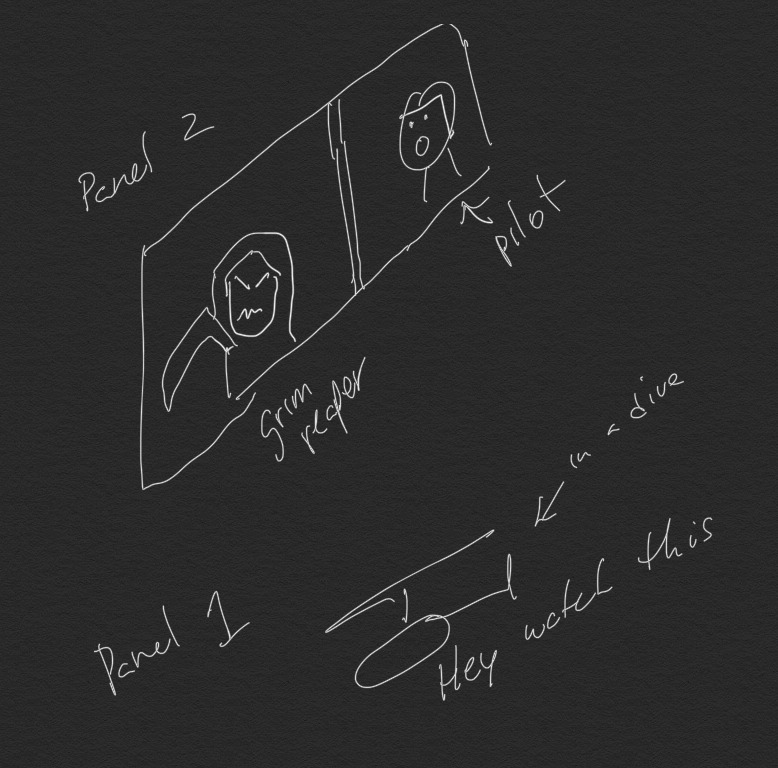 Panel 2
pilot
Grim
reaper
in a dive
Panel 1
Hey watch this